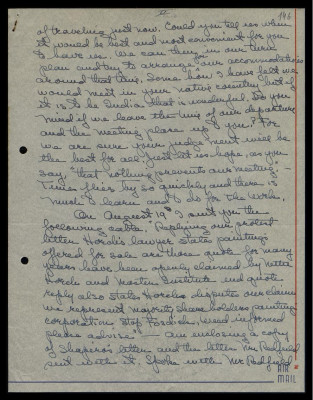 2
146
of traveling just now. Could you tell us when
it would be best and most convenient for you
to have us. We can then in our turn
plan and try to arrange our accommodations
around that time. Some how I have felt we
would meet in your native country but if
it is to be India that is wonderful. Do you
mind if we leave the time of our departure
and the meeting place up to you? For
we are sure your judgement will be
the best for all. Just let us hope, as you
say, "that nothing prevents our meeting." -
Time flies by so quickly and there is
much to learn and to do for the work.
On August 19th I sent you the
following cable. Replying our protest
letter Horch's lawyer states paintings
offered for sale are those quote for many
years have been openly claimed by
Horch and Master Institute end quote
reply also states Horch disputes our claim
we represent majority shareholders painting
corporation stop Fosdick, kind informed
please advise" — Am enclosing a copy
of Shapiro's letter and the letter Mr. Redfield
sent with it. Spoke with Mr Redfield
AIR
MAIL